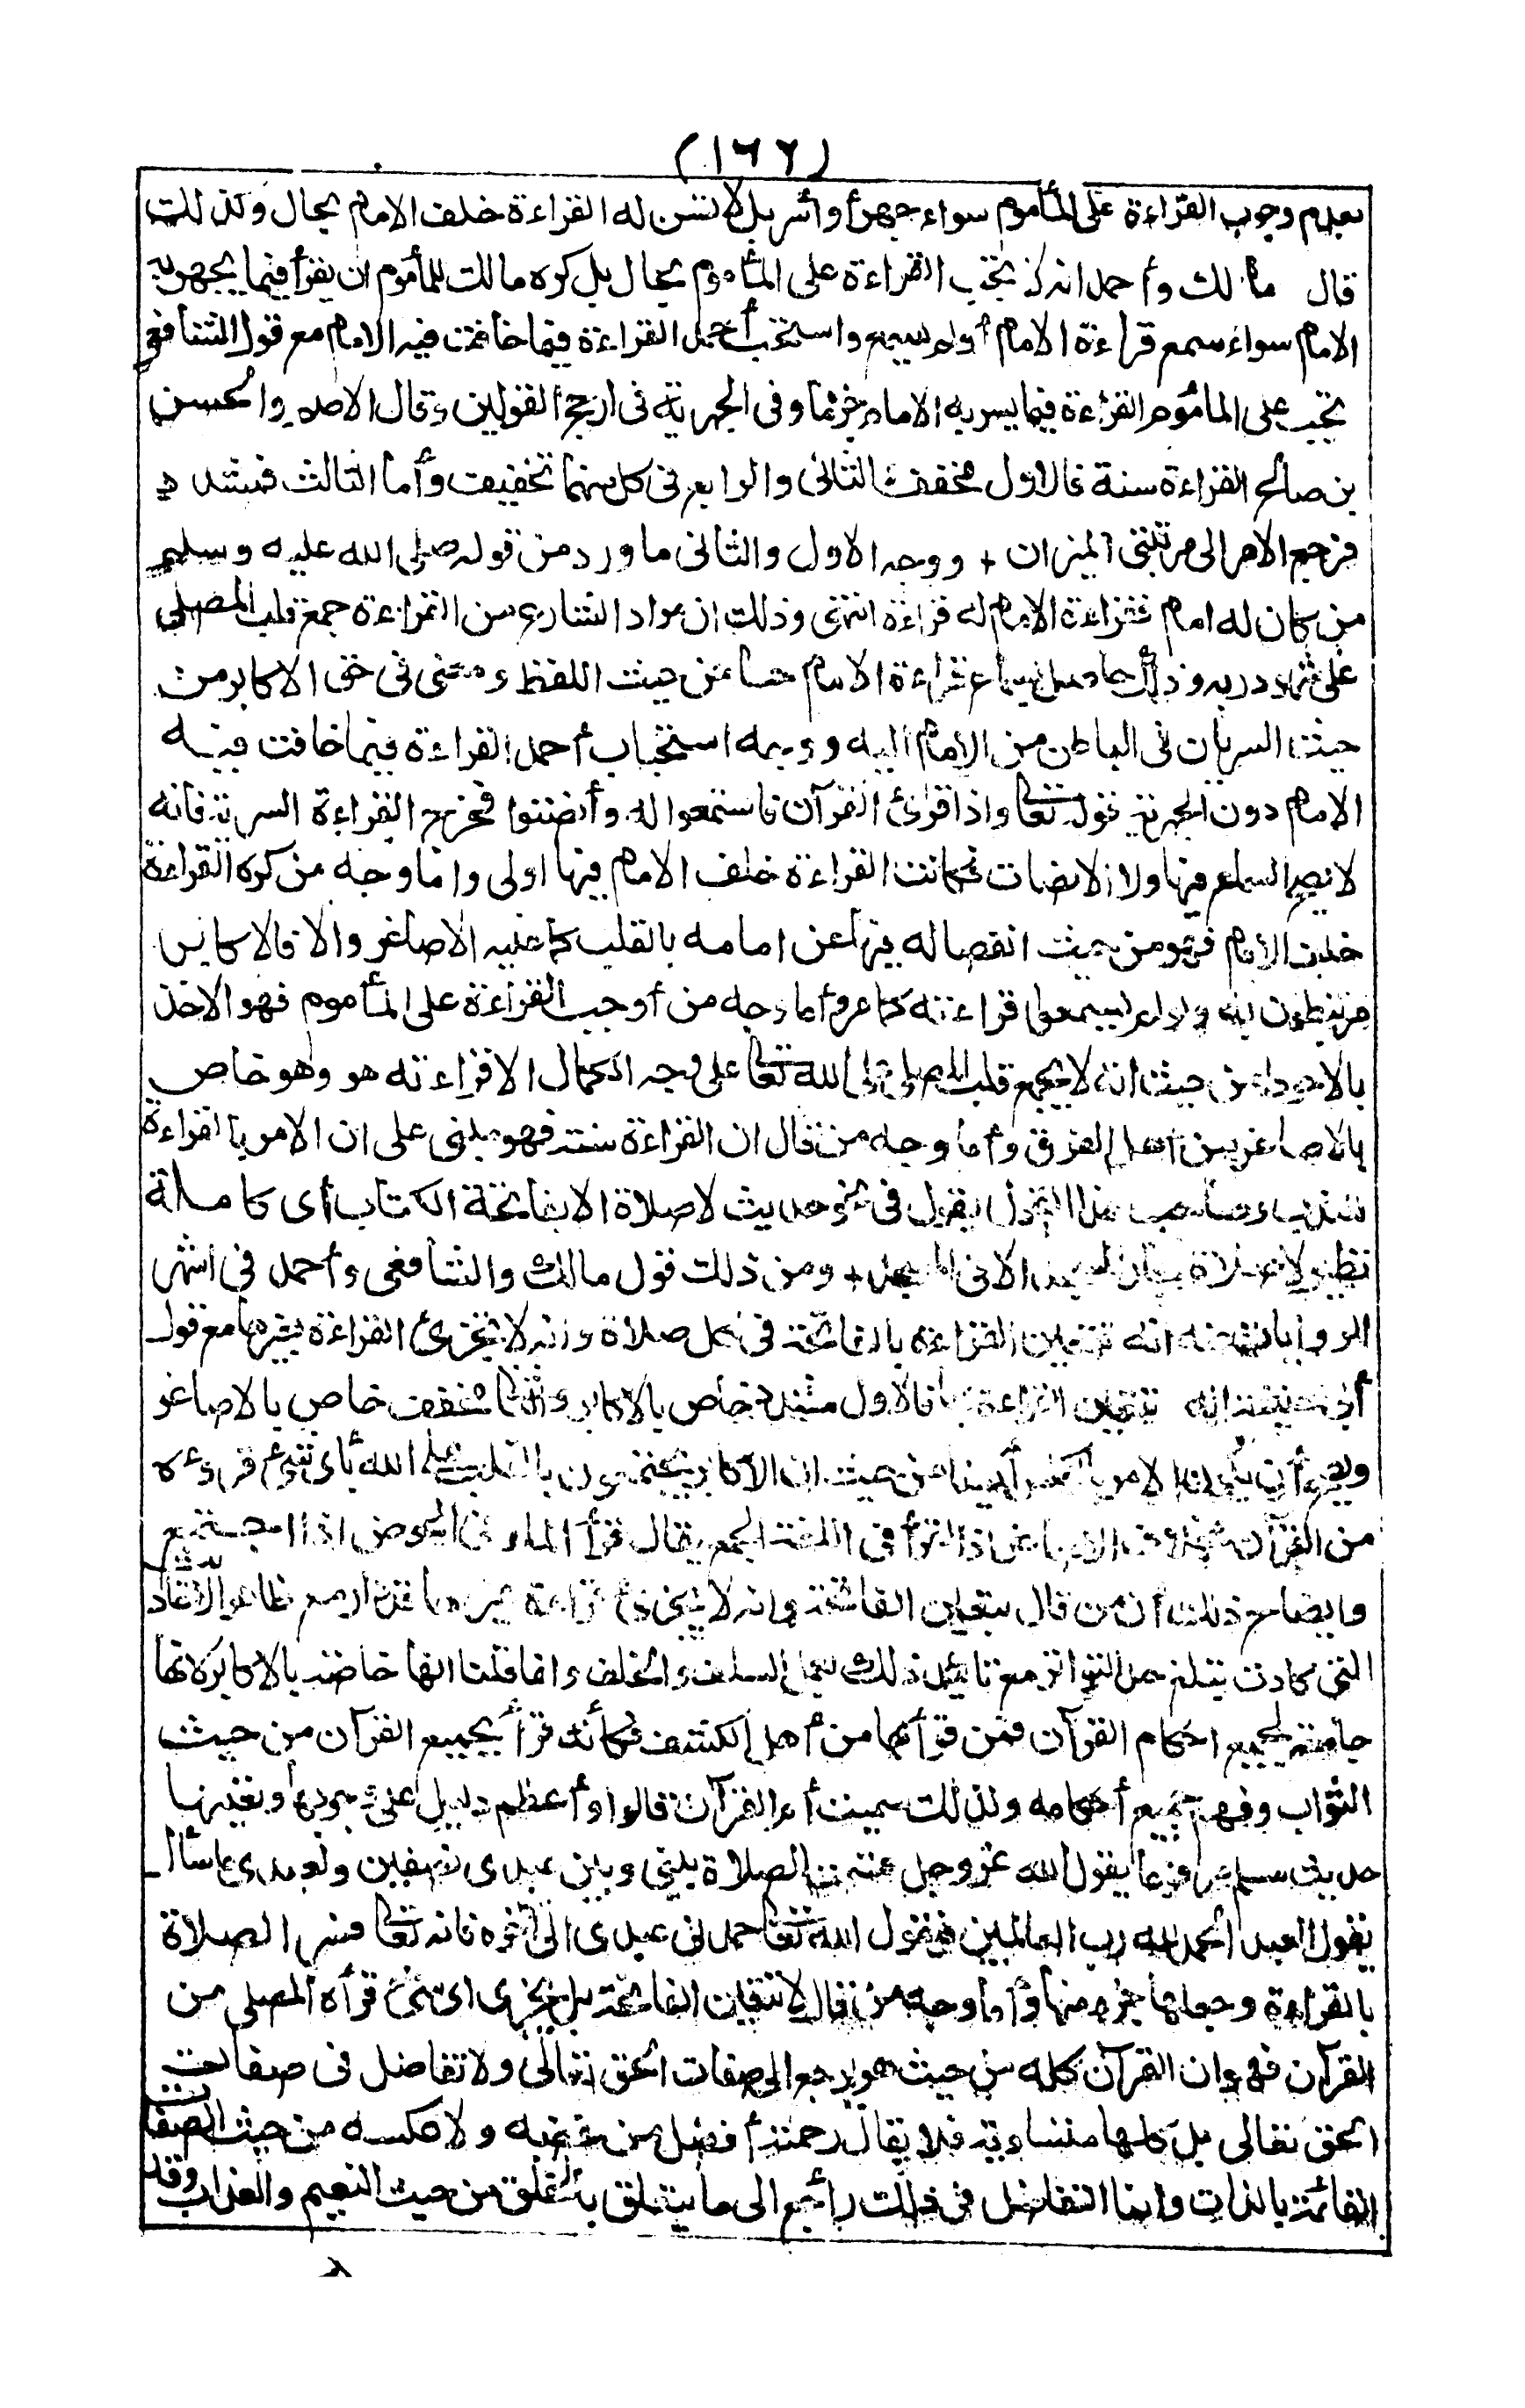 (١٦٦)
بعدم وجوب القراءة على المأموم سواء جهر أو أسر بل لا تسن له القراءة خلف الامام بحال وكذلك
قال مالك وأحمد انه لا تجب القراءة على المأموم بحال بل كره مالك للمأموم ان يقرأ فيما يجهر به
الامام سواء سمع قراءة الامام أو لم يسمع واستحب أحمد القراءة فيما خافت فيه الامام مع قول الشافعي
تجب على المأموم القراءة فيما يسر به الامام جزما وفى الجهرية فى ارجح القولين وقال الاصم والحسن
بن صالح القراءة سنة فالاول مخفف والثانى والرابع فى كل منهما تخفيف وأما الثالث فمشدد
فرجع الامر الى مرتبتى الميزان + ووجه الاول والثانى ما ورد من قوله صلى الله عليه وسلم
من كان له امام فقراءة الامام له قراءة انتهى وذلك ان مراد الشارع من القراءة جمع قلب المصلى
على شهود ربه وذلك حاصل بسماع قراءة الامام حسا من حيث اللفظ ومعنى فى حق الاكابر من
حيث السريان فى الباطن من الامام اليه ووجه استحباب أحمد القراءة فيما خافت فيه
الامام دون الجهرية قوله تعالى واذا قرئ القرآن فاستمعوا له وأنصتوا فخرج القراءة السرية فانه
لا يصح السماع فيها ولا الانصات فكانت القراءة خلف الامام فيها اولى واما وجه من كره القراءة
خلف الامام فهو من حيث انفصاله فيها عن امامه بالقلب كما عليه الاصاغر والا فالاكابر
مرتبطون به ولو لم يسمعوا قراءته كما مر وأما وجه من أوجب القراءة على المأموم فهو الاخذ
بالاحوط من حيث انه لا يجمع قلب المصلى على الله تعالى على وجه الكمال الا قراءته هو وهو خاص
بالاصاغر من أهل الفرق وأما وجه من قال ان القراءة سنة فهو مبنى على ان الامر بالقراءة
للندب وصاحب هذا القول يقول فى نحو حديث لا صلاة الا بفاتحة الكتاب أى كاملة
نظير لا صلاة لجار المسجد الا فى المسجد + ومن ذلك قول مالك والشافعى وأحمد فى اشهر
الروايات عنه انه تتعين القراءة بالفاتحة فى كل صلاة وانه لا تجزئ القراءة بغيرها مع قول
أبى حنيفة انه لا تتعين القراءة بها فالاول مشدد خاص بالاكابر والثانى مخفف خاص بالاصاغر
ويصح أن يكون الامر بالعكس أيضا من حيث ان الاكابر يجتمعون بالقلب على الله بأى شىء قرءوه
من القرآن بخلاف الاصاغر اذ القرأ فى اللغة الجمع يقال قرأ الماء فى الحوض اذا اجتمع
وايضاح ذلك أن من قال بتعين الفاتحة وانه لا يجزئ قراءة غيرها قد دار مع ظاهر الاحاديث
التى كادت تبلغ حد التواتر مع تأييد ذلك بعمل السلف والخلف وانما قلنا انها خاصة بالاكابر لانها
جامعة لجميع احكام القرآن فمن قرأ بها من أهل الكشف فكأنه قرأ بجميع القرآن من حيث
الثواب وفهم جميع أحكامه ولذلك سميت أم القرآن قالوا وأعظم دليل على وجوبها وتعينها
حديث مسلم مرفوعا يقول الله عز وجل قسمت الصلاة بينى وبين عبدى نصفين ولعبدى ما سأل
يقول العبد الحمد لله رب العالمين فيقول الله تعالى حمدنى عبدى الى آخره فانه تعالى فسر الصلاة
بالقراءة وجعلها جزءا منها وأما وجه من قال لا تتعين الفاتحة بل يجزى اى شئ قرأه المصلى من
القرآن فهو ان القرآن كله من حيث هو يرجع الى صفات الحق تعالى ولا تفاضل فى صفات
الحق تعالى بل كلها متساوية فلا يقال رحمته أفضل من غضبه ولا عكسه من حيث الصفات
القائمة بالذات وانما التفاضل فى ذلك راجع الى ما يتعلق بالخلق من حيث النعيم والعذاب وقد